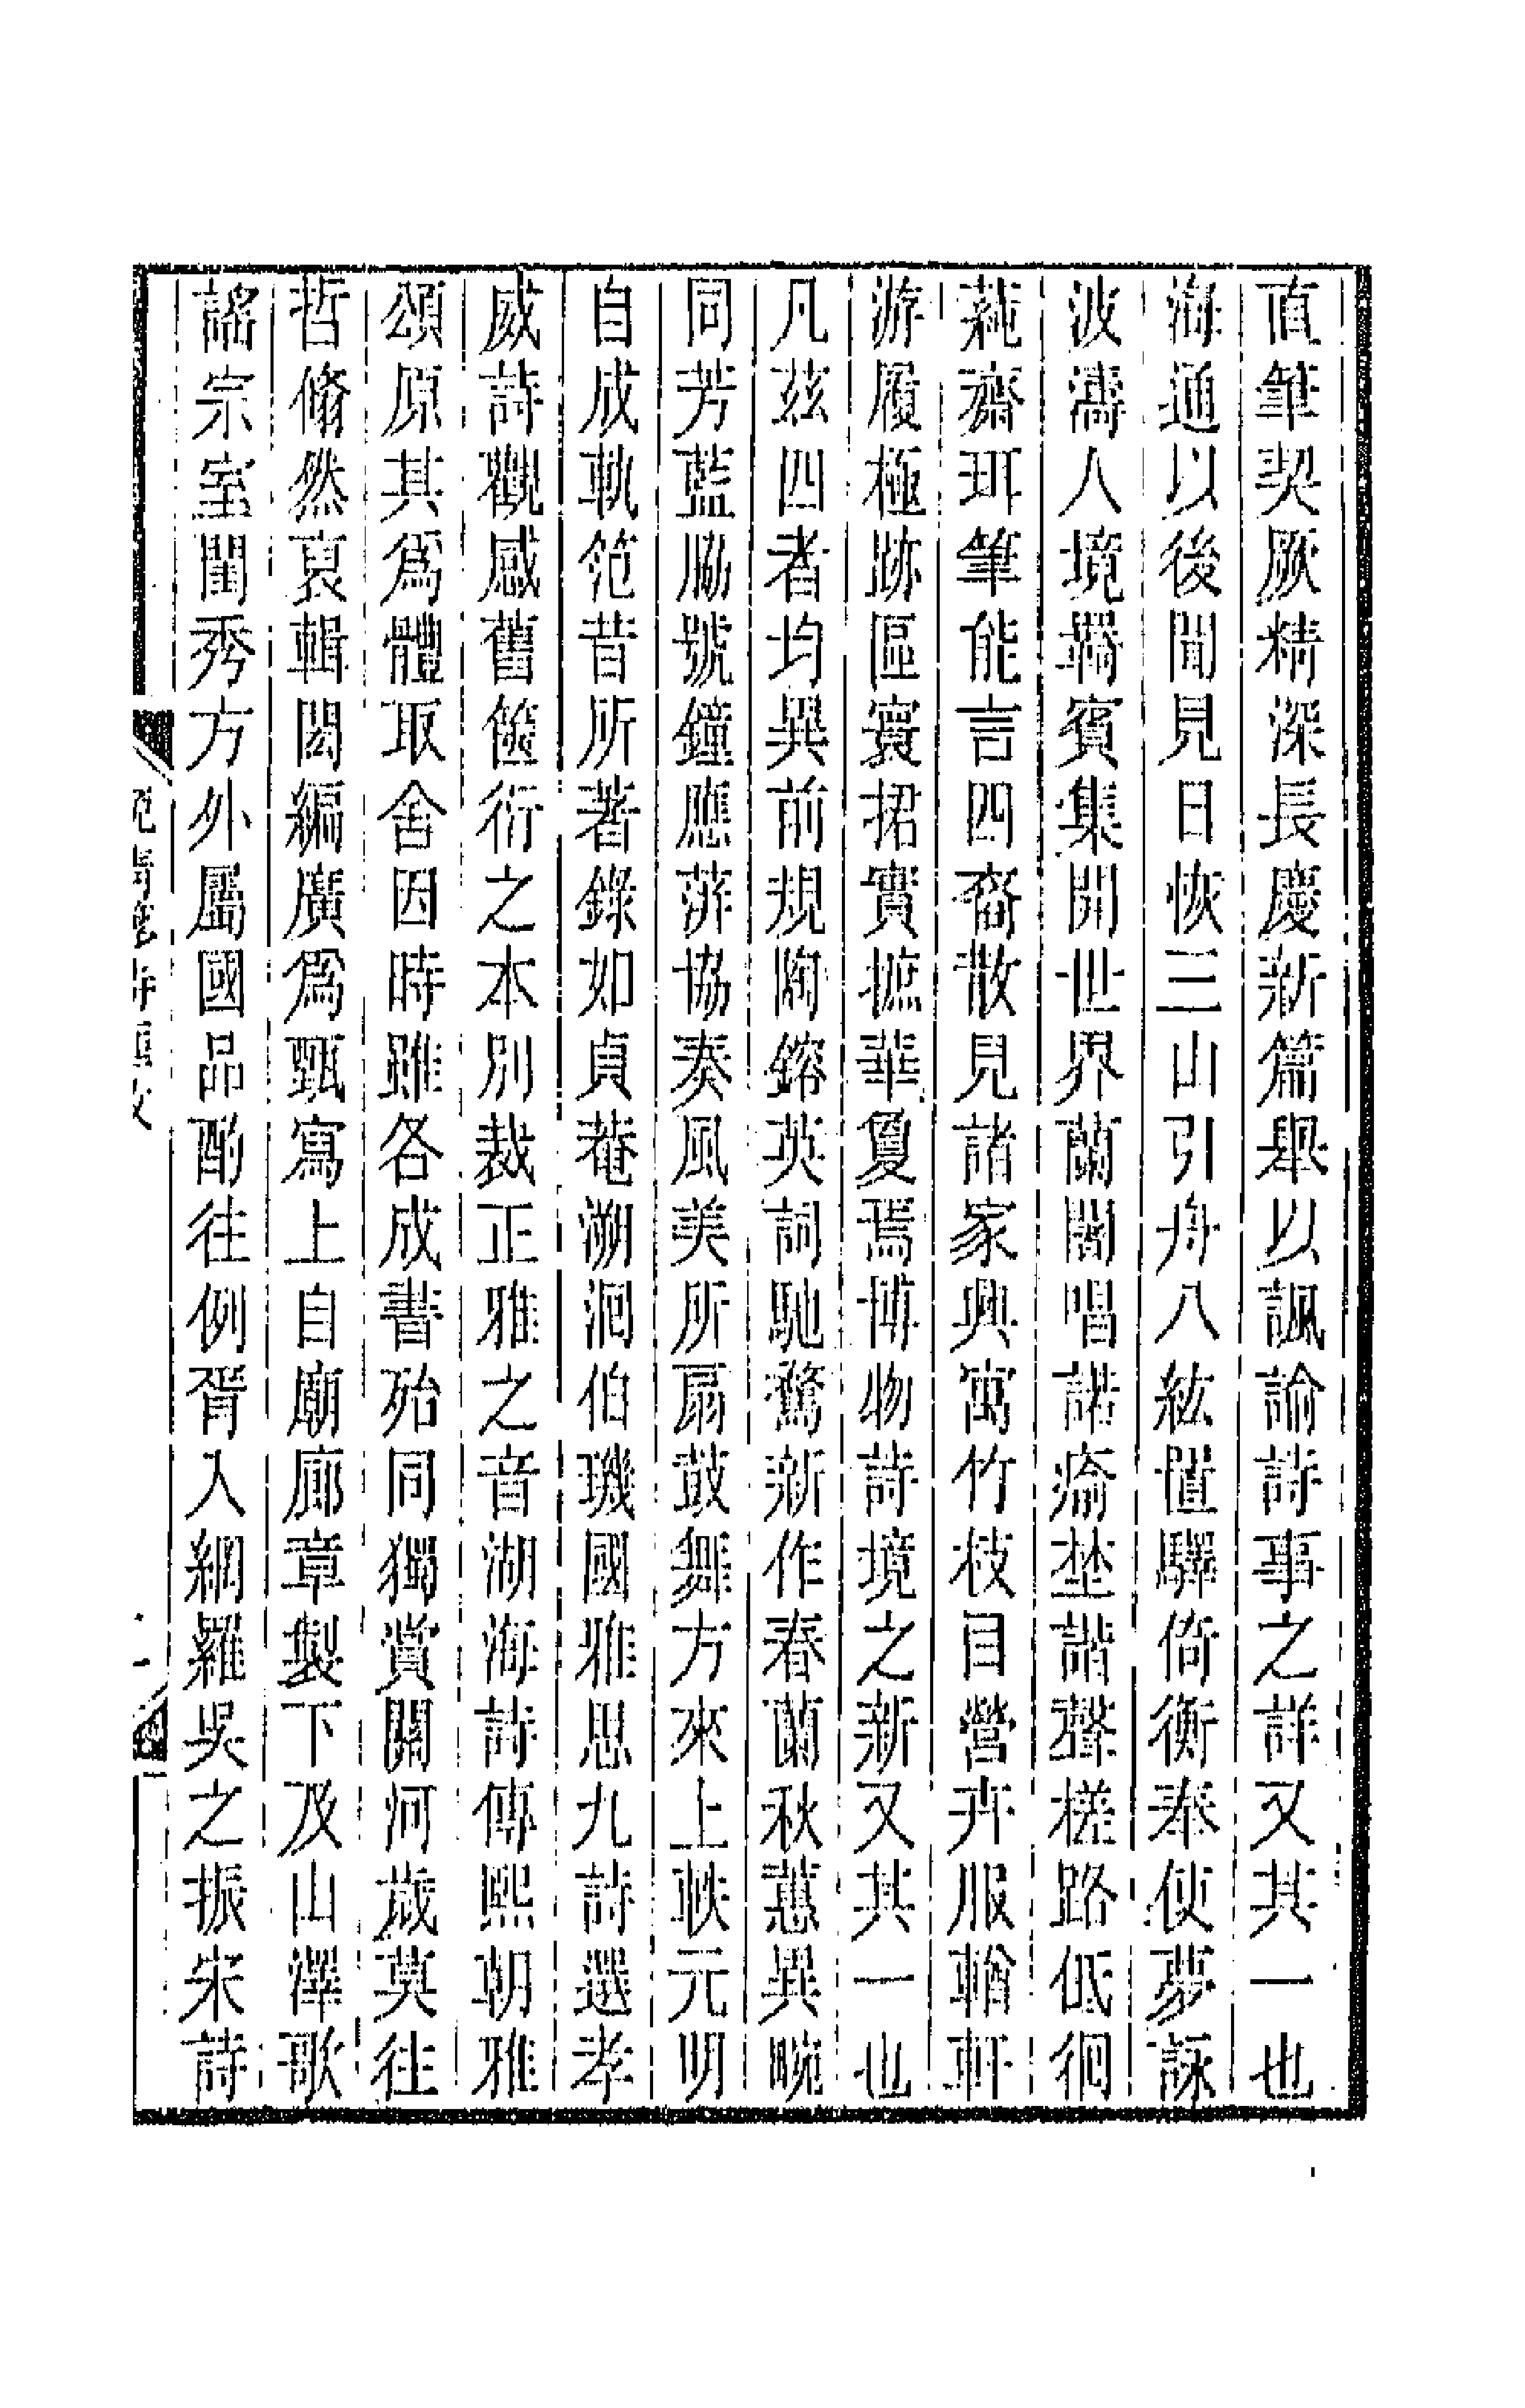 直筆契厥精深長慶新篇舉以諷諭詩事之詳又其一也
海通以後聞見日恢三山引舟八紘置驛倚衡奉使夢詠
波濤人境羈賓集開世界蘭闍唱諾瘉埜諧聲槎路低徊
蒓齋珥筆能言四裔散見諸家興寓竹枝目營卉服輶軒
游履極跡區寰捃實摭華敻焉博物詩境之新又其一也
凡茲四者均異前規陶鎔英詞馳騖新作春蘭秋蕙異畹
同芳藍脇號鐘應湃協奏風美所扇鼓舞方來上軼元明
自成軌范昔所著錄如貞菴溯洄伯璣國雅思九詩選孝
威詩觀感舊篋衍之本別裁正雅之音湖海詩傳熙朝雅
頌原其爲體取舍因時雖各成書殆同獨賞關河歲莫往
哲翛然裒輯閎編廣爲甄寫上自廟廊章製下及山澤歌
謠宗室閨秀方外屬國品酌往例胥入網羅吳之振宋詩